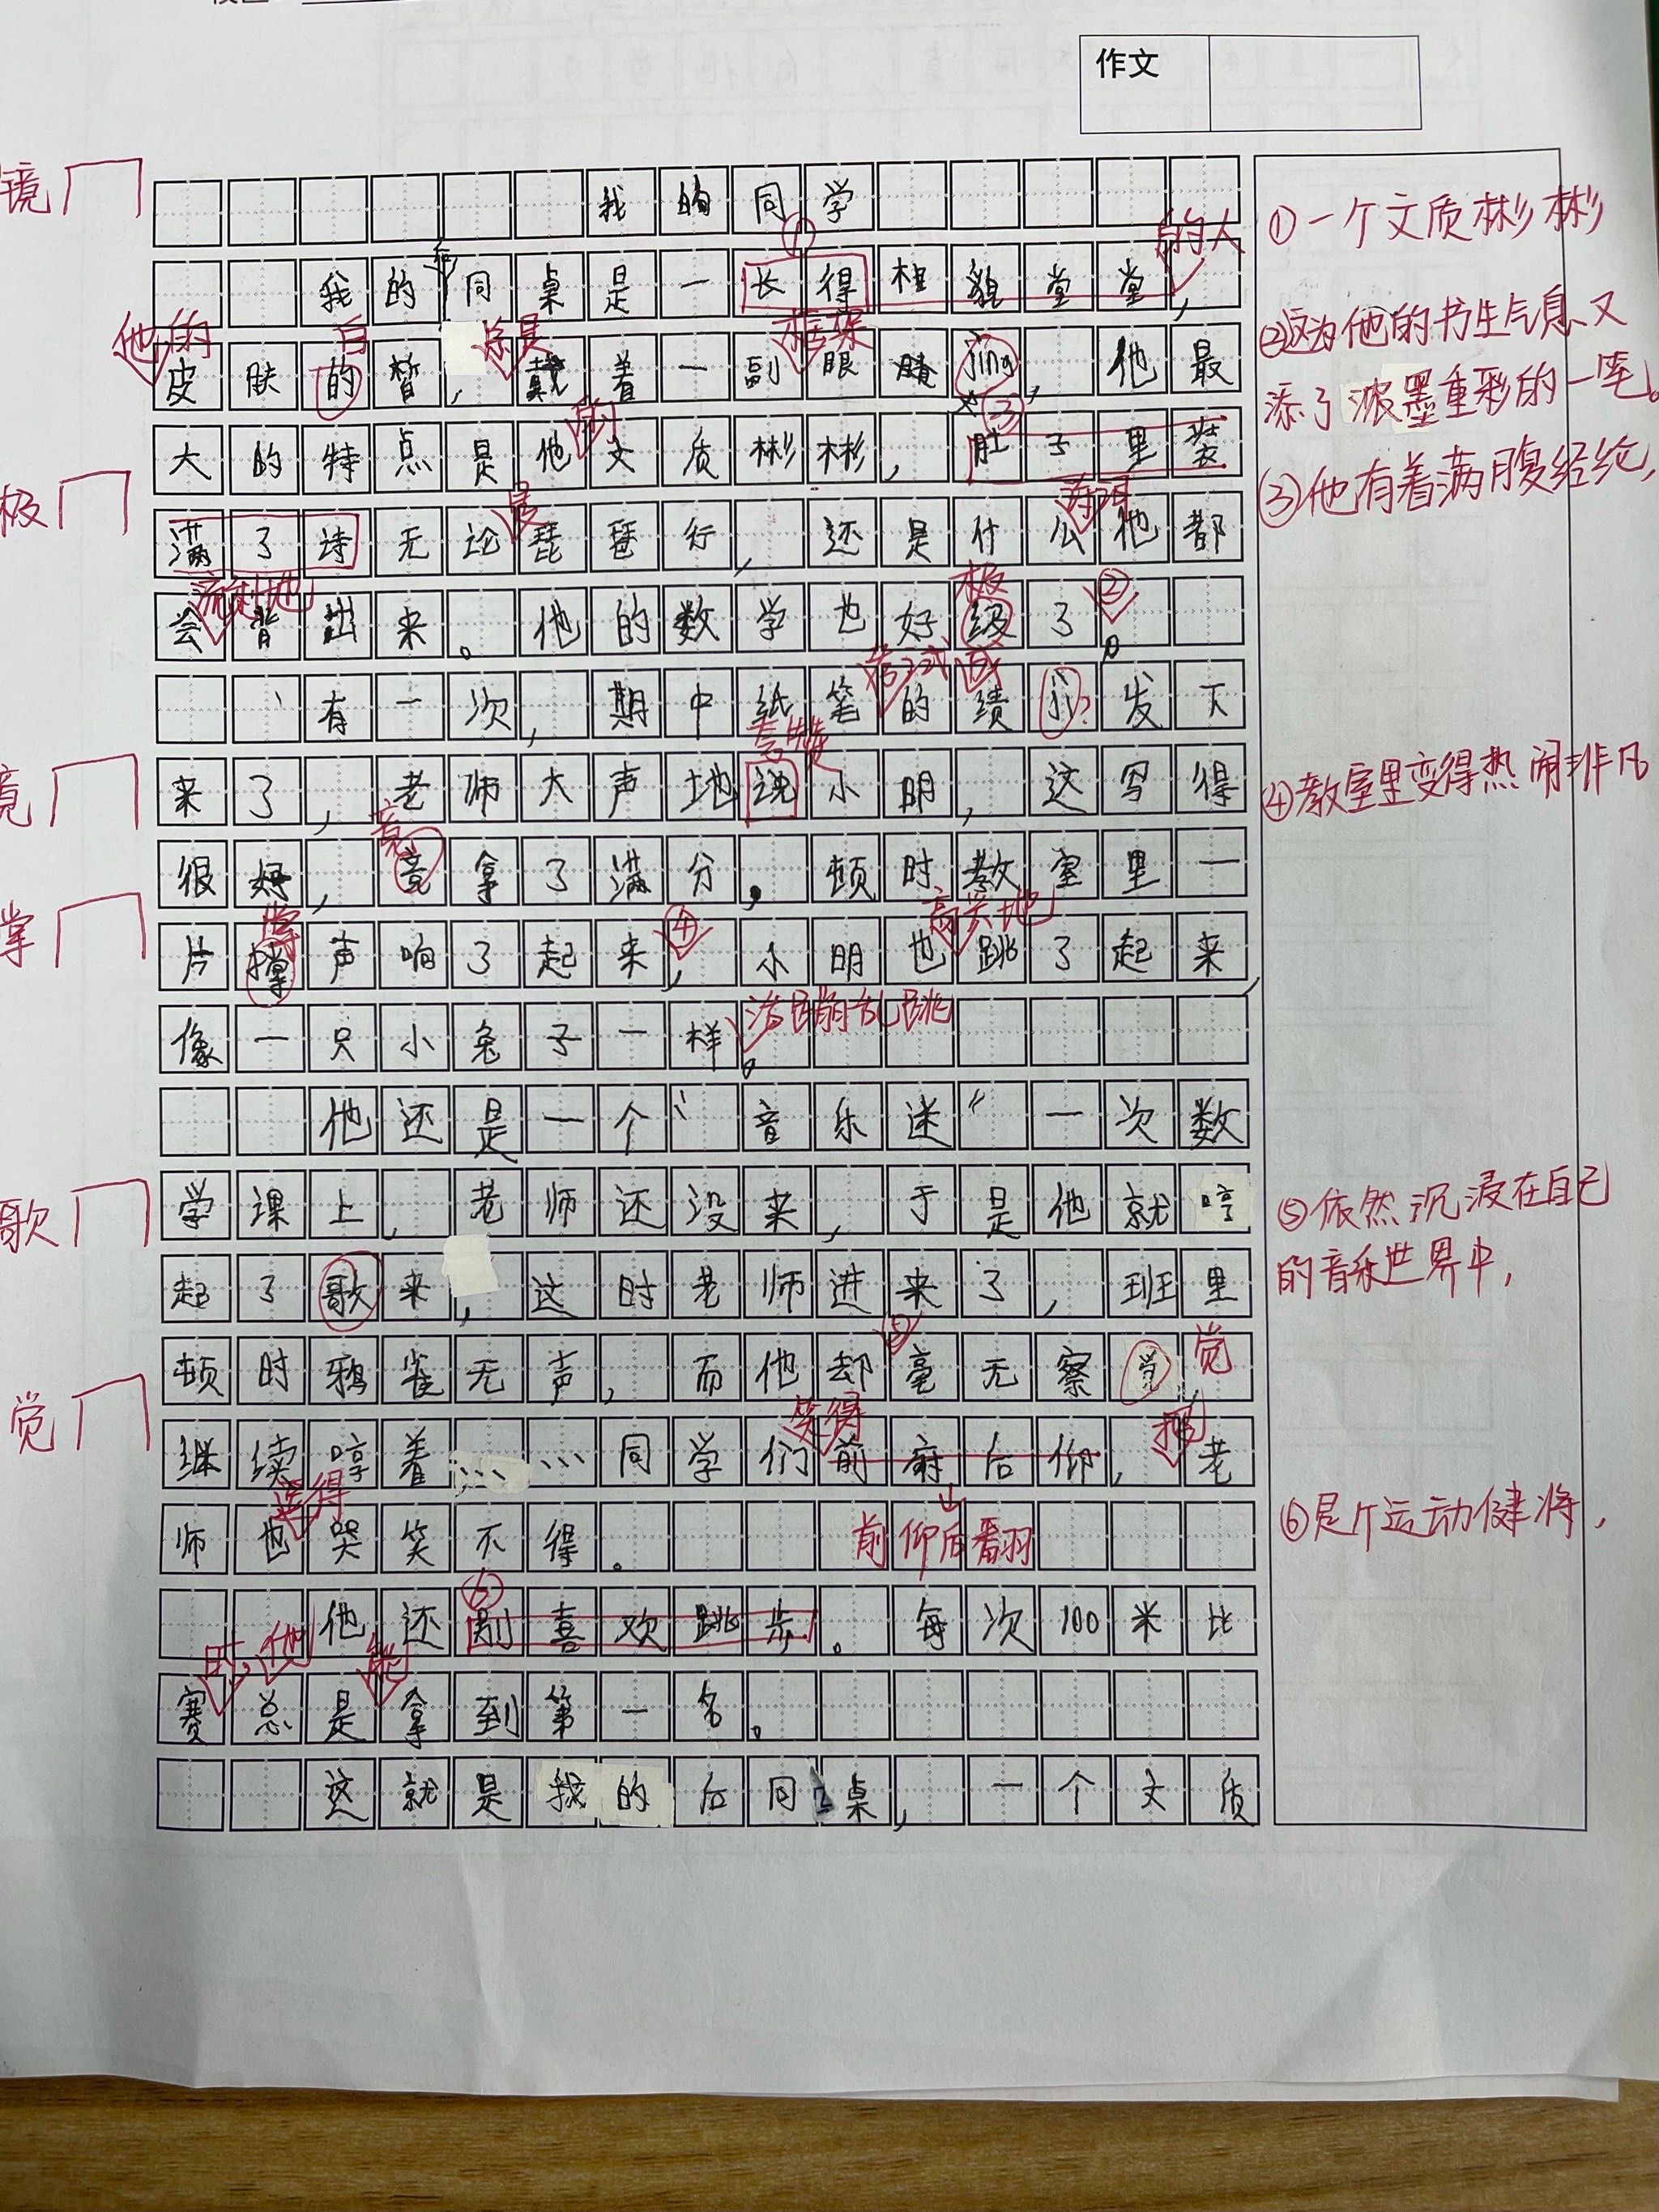 作文
我的同学
我的后同桌是一长得相貌堂堂，
皮肤的皙，戴着一副眼睛jing，他最
大的特点是他文质彬彬，肚子里装
满了诗无论琵琶行，还是什么他都
会背出来。他的数学也好级了。
有一次，期中纸笔的绩发下
来了，老师大声地说小明，这写得
很好，竟拿了满分，顿时教室里一
片撑声响了起来，小明也跳了起来，
像一只小兔子一样。
他还是一个“音乐迷“一次数
学课上，老师还没来，于是他就哼
起了歌来，这时老师进来了，班里
顿时鸦雀无声，而他却毫无察觉，
继续哼着……同学们前府后仰，老
师也哭笑不得。
他还别喜欢跳步。每次100米比
赛总是拿到第一名。
这就是我的后同桌，一个文质
镜
极
竟
掌
歌
觉
的人
他的
白
总是
框架
前
是
流利地
极
②
考试
成
夸赞
竟
掌
④
高兴地
活蹦乱跳
⑤
觉
笑得
那
前仰后翻
⑥
时，他
能
①一个文质彬彬
②这为他的书生气息又
添了浓墨重彩的一笔。
③他有着满腹经纶，
④教室里变得热闹非凡
⑤依然沉浸在自己
的音乐世界中，
⑥是个运动健将，